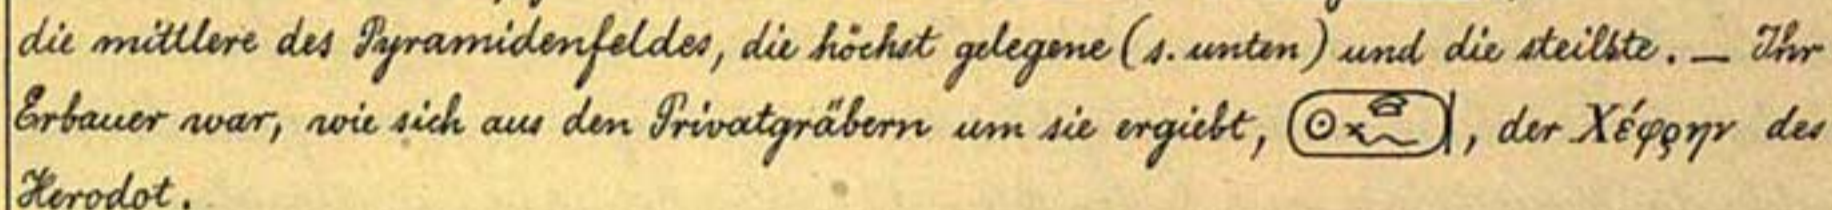 die mittlere des Pyramidenfeldes, die höchst gelegene (s. unten) und die steilste. — Ihr
Erbauer war, wie sich aus den Privatgräbern um sie ergiebt, 𓍹𓇳𓈍𓆑𓍺, der Χέφρην des
Herodot.